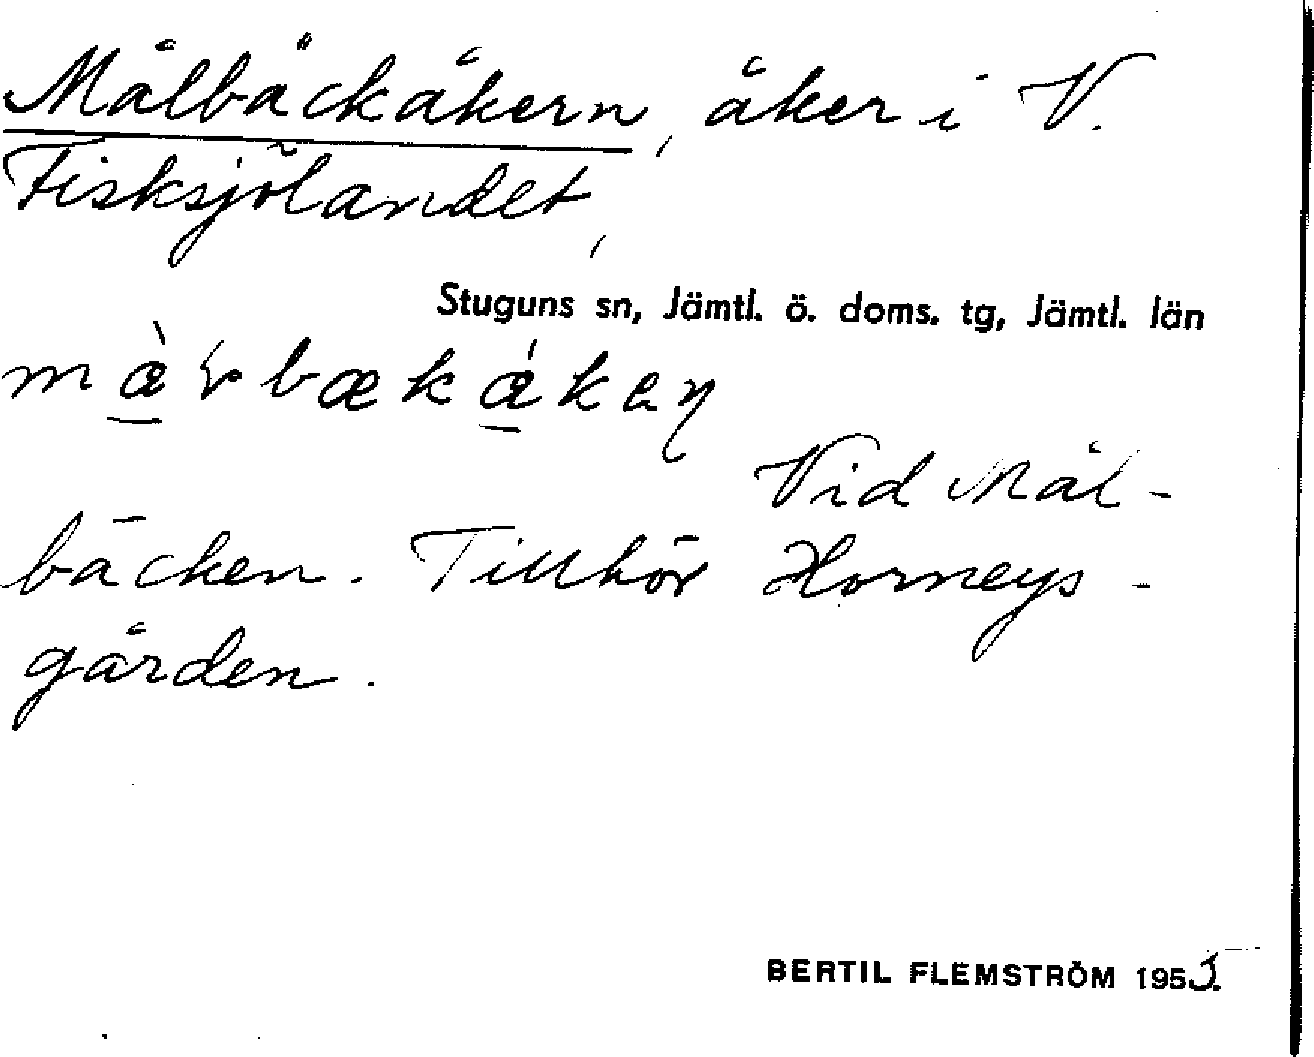 Målbäckåkern, åker i V.
Fisksjölandet,
Stuguns sn, Jämtl. ö. doms. tg, Jämtl. län
Vid Mål-
bäcken. Tillhör Horneys-
gården.
BERTIL FLEMSTRÖM 1955.